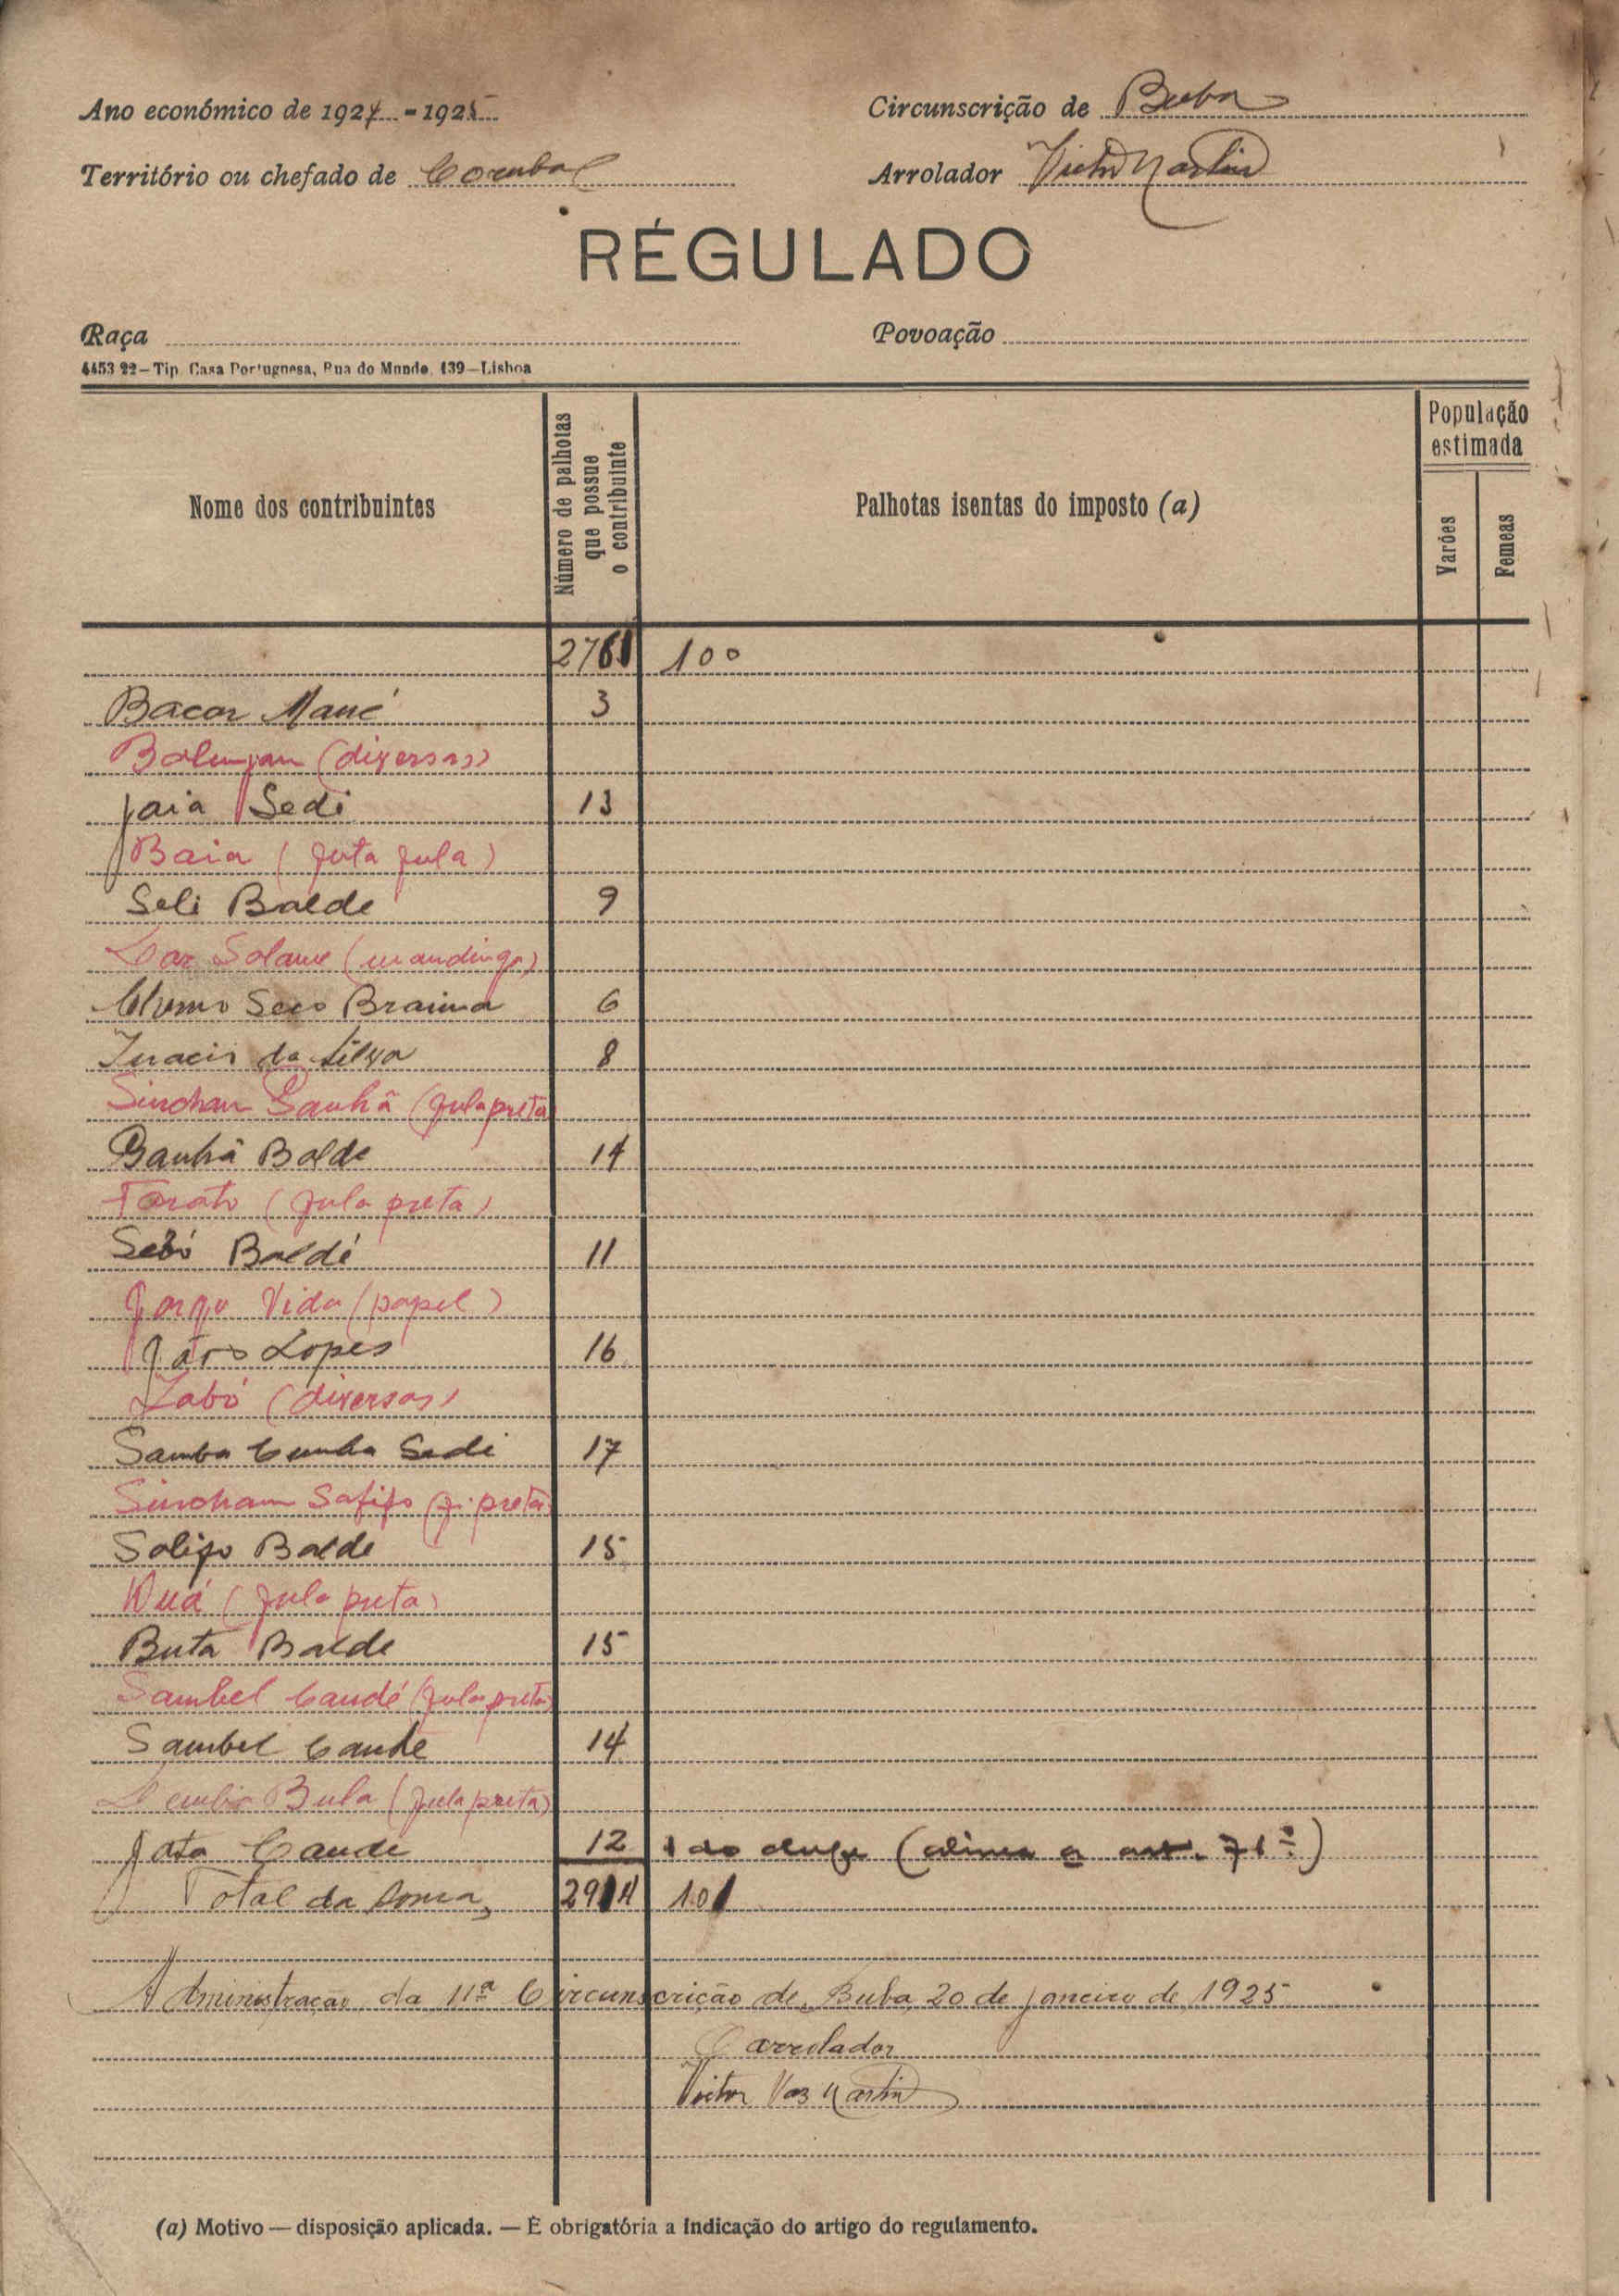 Ano económico de 1924 - 1925
Circunscrição de Buba
Território ou chefado de Corubal
Arrolador Victor Martins
RÉGULADO
Raça
Povoação
4453 22 — Tip. Casa Portuguesa, Rua do Mundo, 139 — Lisboa
Nome dos contribuintes
Número de palhotas que possue o contribuinte
Palhotas isentas do imposto (a)
População estimada
Varões
Femeas
2761 100
Bacar Mané 3
(diversas)
Jaia Sedi 13
Baia (futa fula)
Seli Balde 9
(mandinga)
Seco Braima 6
da Silva 8
Sinchan Ganhâ (fula preta)
Ganhâ Balde 14
(fula preta)
Baldé 11
Vida (papel)
João Lopes 16
(diversas)
Samba Cumba Sedi 17
Sincham Salifo (f. preta)
Salifo Balde 15
(fula preta)
Buta Balde 15
Sambel Candé (fula preta)
Sambel Cande 14
Bula (fula preta)
Cande 12 1 do chefe (alinea a art. 71º)
Total da soma 2914 101
Administração da 11ª Circunscrição de Buba, 20 de janeiro de 1925
O arrolador
Victor Vaz Martins
(a) Motivo — disposição aplicada. — É obrigatória a indicação do artigo do regulamento.